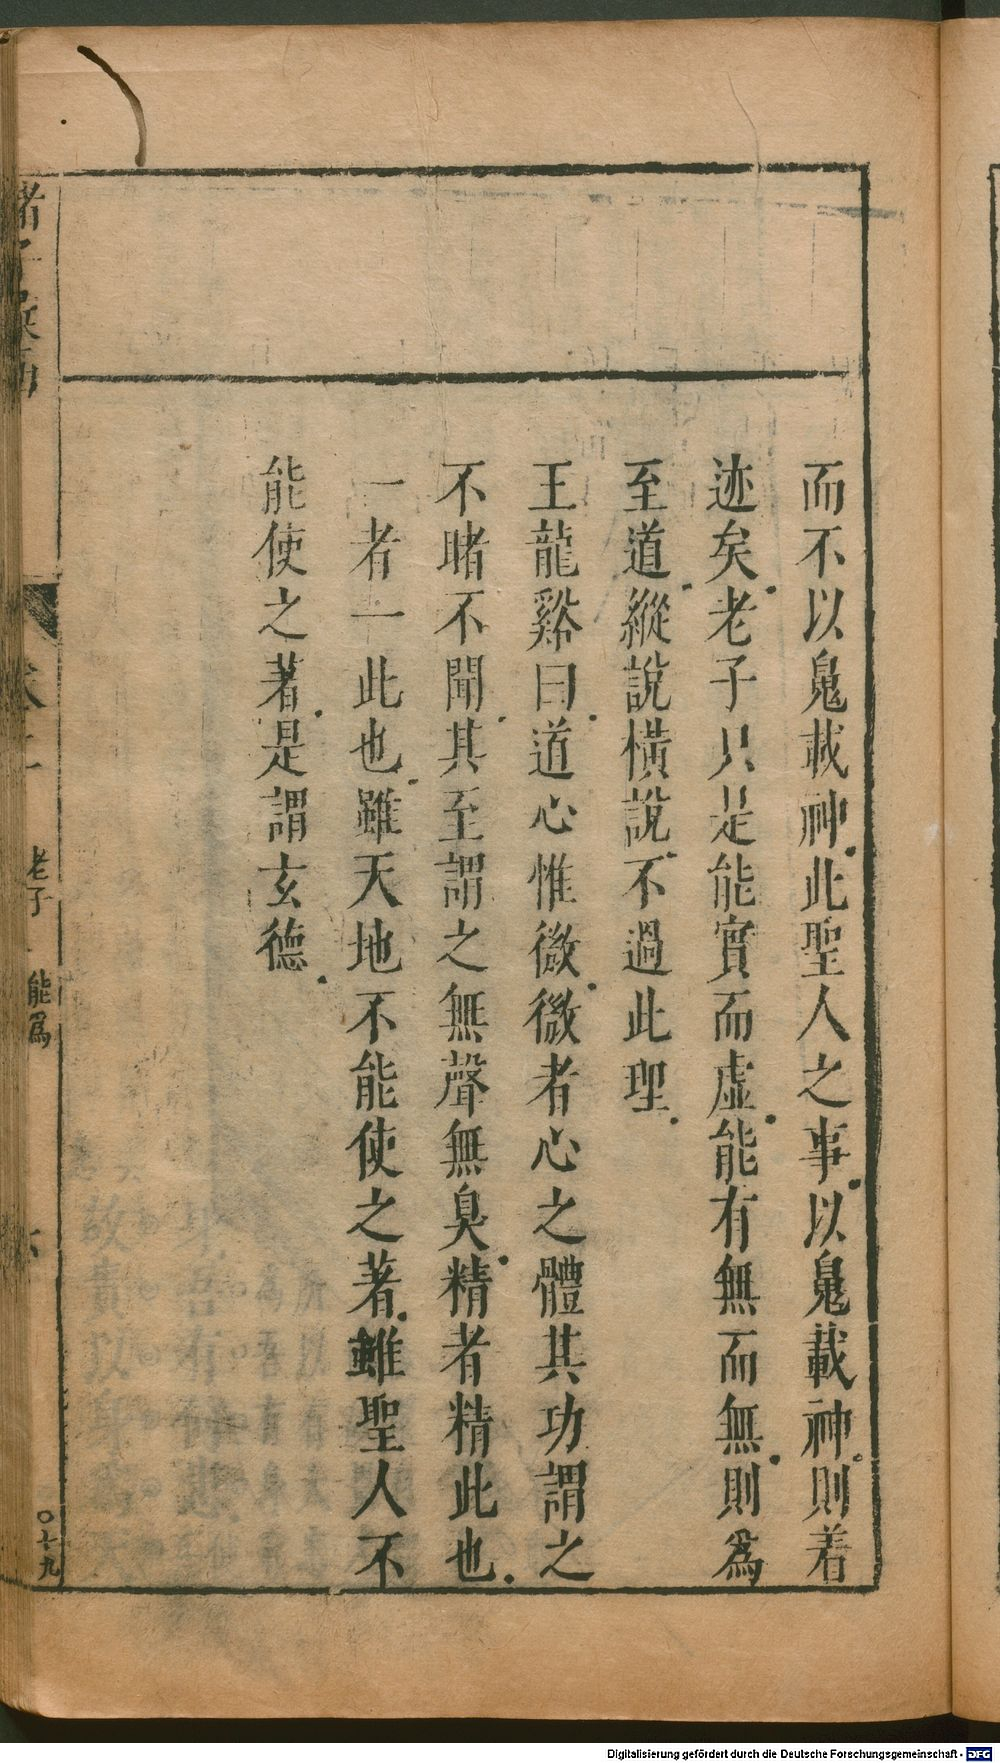 而不以鬼載神此聖人之事以鬼載神則着
迹矣老子只是能實而虛能有無而無則爲
至道縱說橫說不過此理
王龍谿曰道心惟微微者心之體其功謂之
不睹不聞其至謂之無聲無臭精者精此也
一者一此也雖天地不能使之著雖聖人不
能使之著是謂玄德
老子 能爲
〇七九
Digitalisierung gefördert durch die Deutsche Forschungsgemeinschaft - DFG